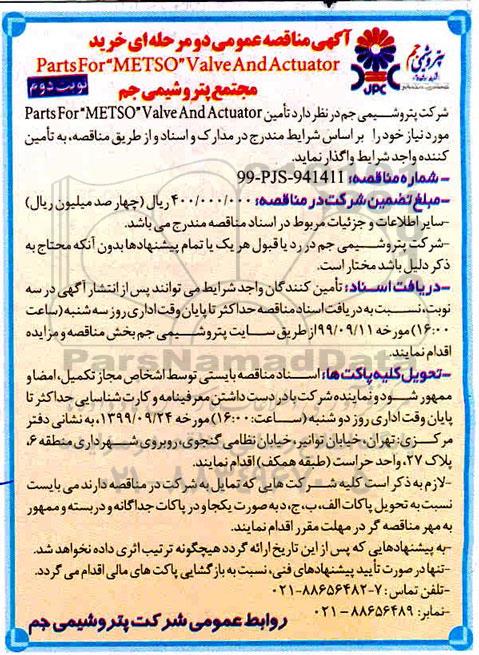 آگهی مناقصه عمومی دو مرحله ای خرید
Parts For "METSO" Valve And Actuator
مجتمع پتروشیمی جم
نوبت دوم
پتروشیمی جم
JPC
شرکت پتروشیمی جم در نظر دارد تأمین Parts For "METSO" Valve And Actuator
مورد نیاز خود را بر اساس شرایط مندرج در مدارک و اسناد و از طریق مناقصه، به تأمین
کننده واجد شرایط واگذار نماید.
- شماره مناقصه: 99-PJS-941411
- مبلغ تضمین شرکت در مناقصه: ۴۰۰/۰۰۰/۰۰۰ ریال (چهار صد میلیون ریال)
-سایر اطلاعات و جزئیات مربوط در اسناد مناقصه مندرج می باشد.
-شرکت پتروشیمی جم در رد یا قبول هر یک یا تمام پیشنهادها بدون آنکه محتاج به
ذکر دلیل باشد مختار است.
-دریافت اسناد: تأمین کنندگان واجد شرایط می توانند پس از انتشار آگهی در سه
نوبت، نسبت به دریافت اسناد مناقصه حداکثر تا پایان وقت اداری روز سه شنبه (ساعت
۱۶:۰۰) مورخه ۹۹/۰۹/۱۱ از طریق سایت پتروشیمی جم بخش مناقصه و مزایده
اقدام نمایند.
ParsNamadData
-تحویل کلیه پاکت ها: اسناد مناقصه بایستی توسط اشخاص مجاز تکمیل، امضا و
ممهور شود و نماینده شرکت با در دست داشتن معرفینامه و کارت شناسایی حداکثر تا
پایان وقت اداری روز دو شنبه (ساعت: ۱۶:۰۰) مورخه ۱۳۹۹/۰۹/۲۴، به نشانی دفتر
مرکزی: تهران، خیابان توانیر، خیابان نظامی گنجوی، روبروی شهرداری منطقه ۶،
پلاک ۲۷، واحد حراست (طبقه همکف) اقدام نمایند.
-لازم به ذکر است کلیه شرکت هایی که تمایل به شرکت در مناقصه دارند می بایست
نسبت به تحویل پاکات الف، ب، ج، د به صورت یکجا و در پاکات جداگانه و دربسته و ممهور
به مهر مناقصه گر در مهلت مقرر اقدام نمایند.
-به پیشنهادهایی که پس از این تاریخ ارائه گردد هیچگونه ترتیب اثری داده نخواهد شد.
-تنها در صورت تأیید پیشنهادهای فنی، نسبت به بازگشایی پاکت های مالی اقدام می گردد.
-تلفن تماس: ۷-۸۸۶۵۶۴۸۲-۰۲۱
-نمابر: ۸۸۶۵۶۴۸۹ - ۰۲۱
روابط عمومی شرکت پتروشیمی جم